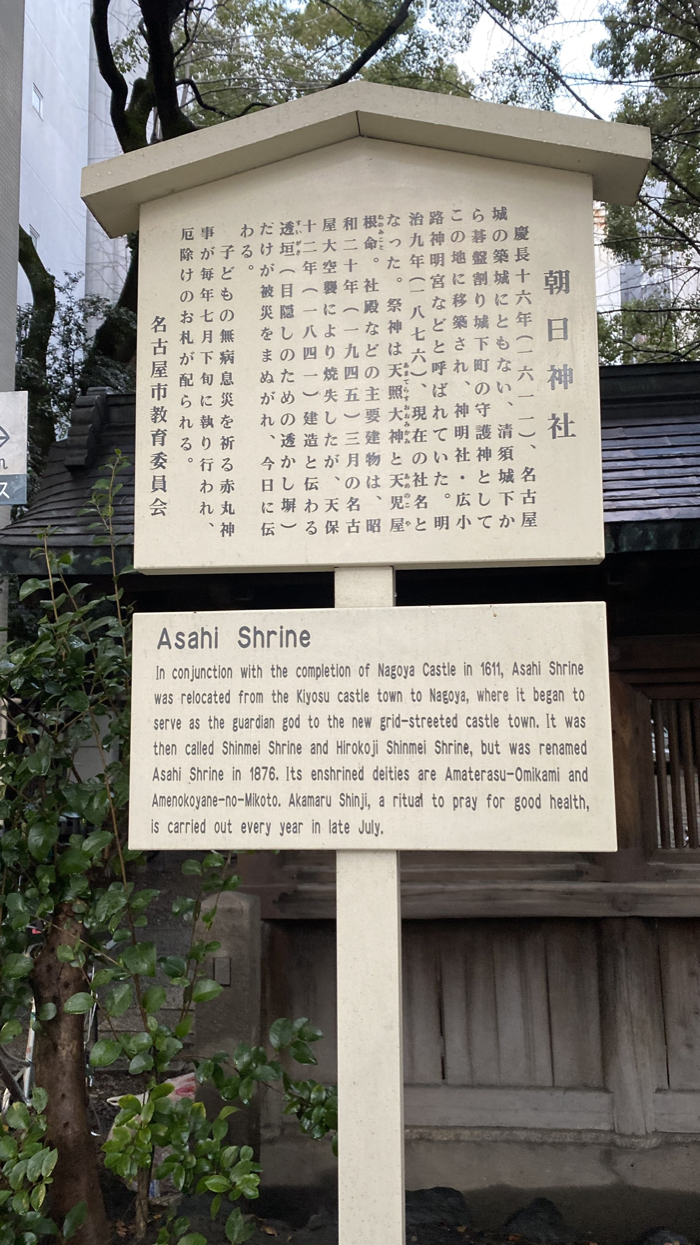 朝日神社
慶長十六年（一六一一）、名古屋
城の築城にともない、清須城下か
ら碁盤割り城下町の守護神として
この地に移築され、神明社・広小
路神明宮などと呼ばれていた。明
治九年（一八七六）、現在の社名と
なった。祭神は天照大神と天児屋
根命。社殿などの主要建物は、昭
和二十年（一九四五）三月の名古
屋大空襲により焼失したが、天保
十二年（一八四一）建造と伝わる
透垣（目隠しのための透かし塀）
だけが被災をまぬがれ、今日に伝
わる。
子どもの無病息災を祈る赤丸神
事が毎年七月下旬に執り行われ、
厄除けのお札が配られる。
名古屋市教育委員会
Asahi Shrine
In conjunction with the completion of Nagoya Castle in 1611, Asahi Shrine
was relocated from the Kiyosu castle town to Nagoya, where it began to
serve as the guardian god to the new grid-streeted castle town. It was
then called Shinmei Shrine and Hirokoji Shinmei Shrine, but was renamed
Asahi Shrine in 1876. Its enshrined deities are Amaterasu-Omikami and
Amenokoyane-no-Mikoto. Akamaru Shinji, a ritual to pray for good health,
is carried out every year in late July.